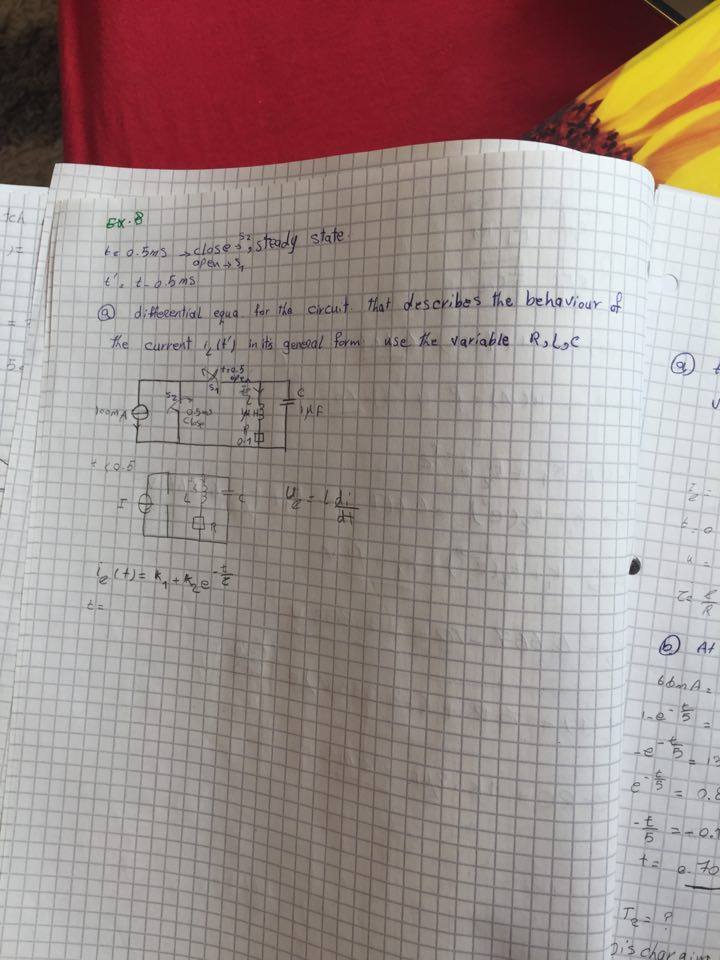 Ex. 8
t = 0.5ms → close → S2, steady state.
open → S1
t' = t - 0.5ms
a differential equa for the circuit that describes the behaviour of
the current iL(t') in its general form use the variable R, L, C
t=0.5
open
S1
S2
0.5ms
close
100mA
L
R
0.1
C
1 μF
t < 0.5
I
L
R
C
= L di/dt
(t) = k1 + k2 e^-t/τ
t =
a
b At
66mA =
1-e^-t/5 =
-e^-t/5 =
e^-t/5 = 0.8
-t/5 = -0.1
t = 0.70
= ?